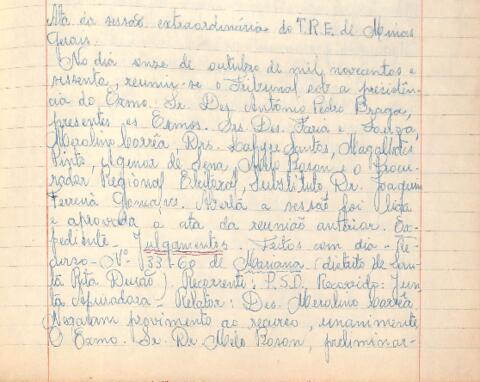 Ata da sessão extraordinária do T.R.E. de Minas
Gerais.
No dia onze de outubro de mil novecentos e
sessenta, reuniu-se o Tribunal sob a presidên-
cia do Exmo. Sr. Des. Antônio Pedro Braga,
presentes os Exmos. Srs. Des. Faria e Souza,
Merolino Corrêa, Drs. Lafyse Santos, Magalhães
Pinto, Agenor de Sena, Melo Boson e o Procu-
rador Regional Eleitoral, Substituto Dr. Joaquim
Ferreira Gonçalves. Aberta a sessão foi lida
e aprovada a ata da reunião anterior. Ex-
pediente - Julgamentos. Feitos com dia - Re-
curso - Nº 133-60 de Mariana (distrito de San-
ta Rita Durão). Recorrente: P.S.D. Recorrido: Jun-
ta Apuradora - Relator: Des. Merolino Corrêa
Negaram provimento ao recurso, unanimemente
O Exmo. Sr. Dr. Melo Boson, preliminar-